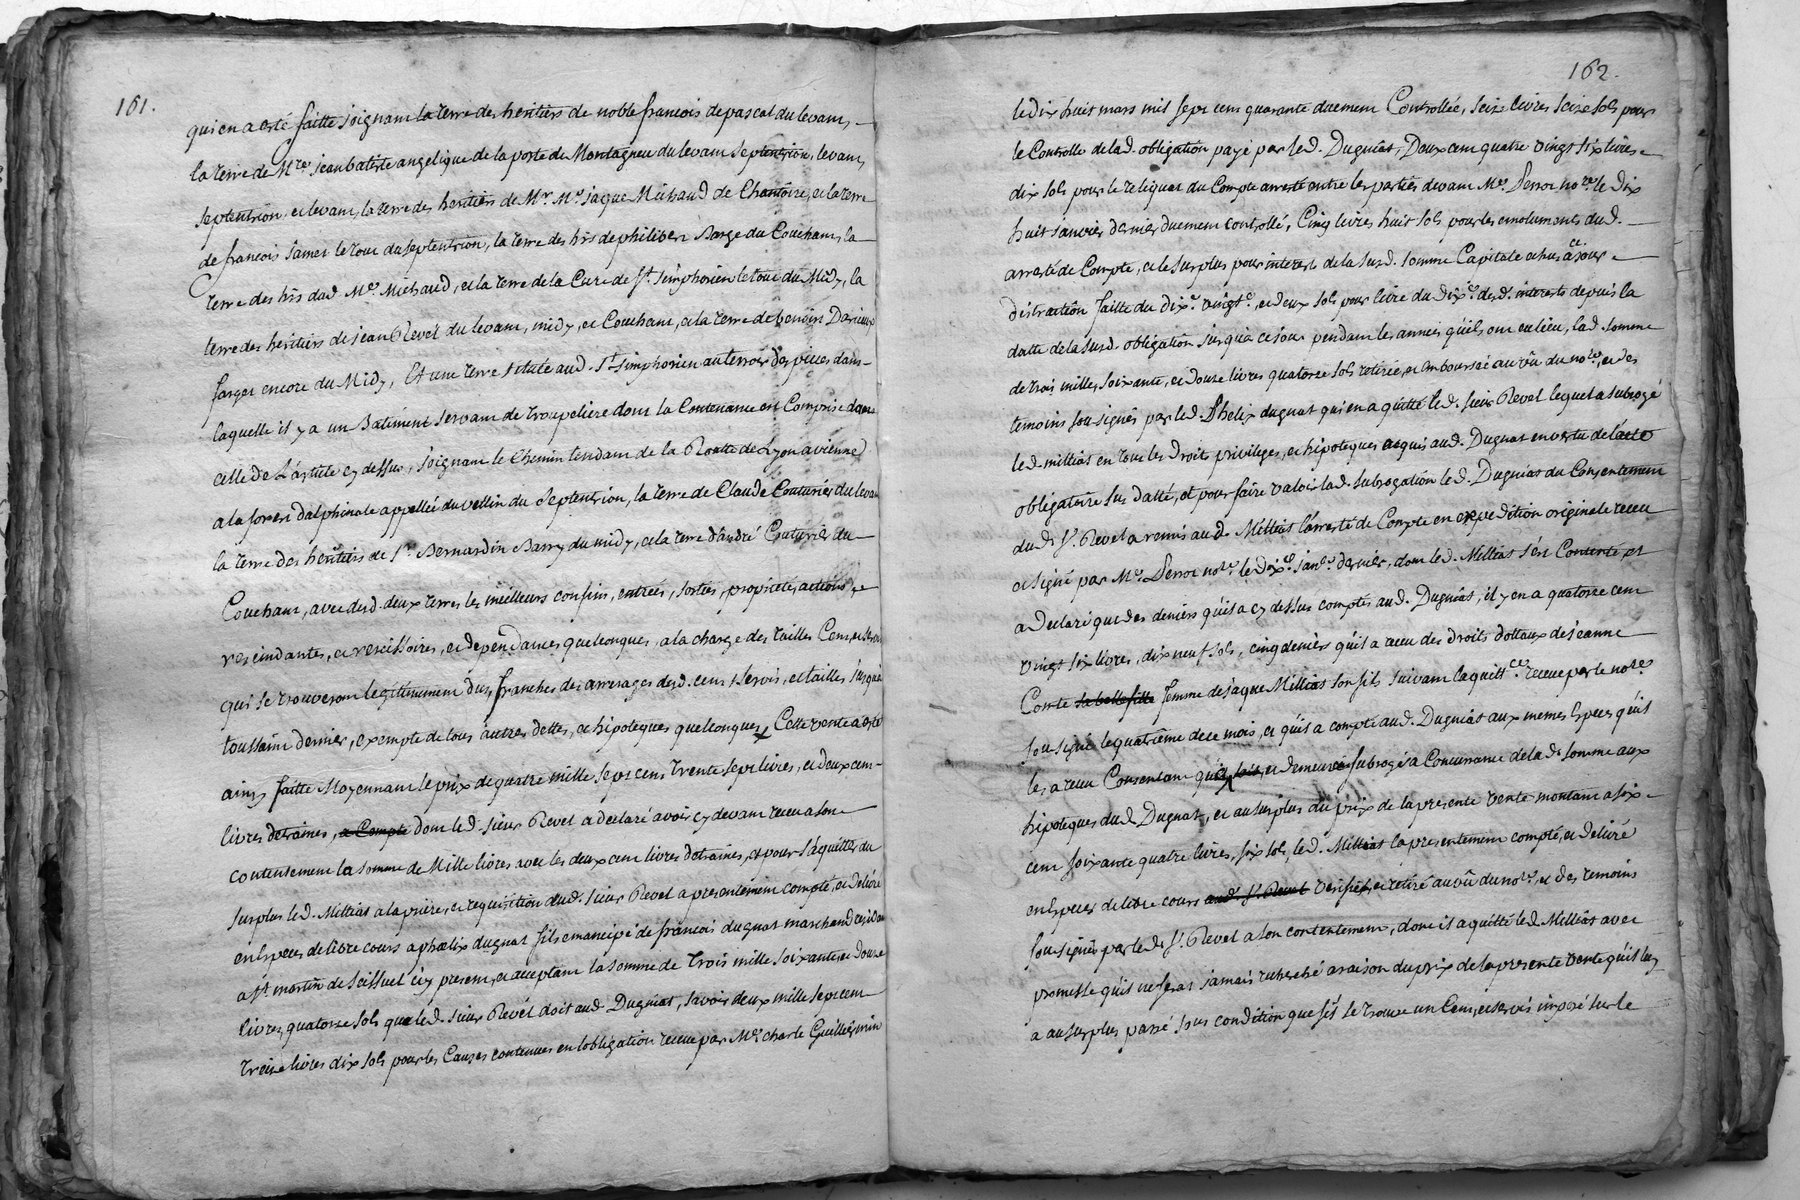 161.
qui en a esté faitte joignant la terre des heritiers de noble francois de pascal du levant,
la terre de Mre jean batiste angelique de la porte de Montagneu du levant septentrion, levant,
septentrion et levant, la terre des heritiers de Mr Me jaque Michaud de Chantoire, et la terre
de francois jamet le tout du septentrion, la terre des hrs de philibert Barge du Couchant, la
terre des hrs dud Me Michaud, et la terre de la Cure de St simphorien le tout du Midy, la
terre des heritiers de jean Revel du levant, midy, et Couchant, et la terre de benoist
farges encore du Midy, Et une terre située aud. St simphorien au terroir des pilles dans
laquelle il y a un Batiment servant de troupeliere dont la Contenance est Comprise dans
celle de L'article cy dessus, joignant le Chemin tendant de la Routte de Lyon a vienne
a la forest dalphinale appellée du vellin du Septentrion, la terre de Claude Couturier du levant
la terre des heritiers de Sr Bernardin Barry du midy, et la terre d'andré Couturier du
Couchant, avec desd. deux terres les meilleurs confins, entrées, sorties, proprietés, actions
rescindantes, et rescissoires, et dependances quelconques, a la charge des tailles Cens et servis
qui se trouveront legitimement dus, franches des arrerages desd. cens servis, et tailles jusqu'a
toussaint dernier, exempte de tous autres dettes, et hipoteques quelconques, Cette vente a esté
ainsy faitte Moyennant le prix de quatre mille sept cens trente sept livres, et deux cent
livres detraines, a Compte dont led. sieur Revel a declaré avoir cy devant receu a son
contentement la somme de Mille livres avec les deux cent livres detraines, et pour s'aquitter du
surplus led. Millias a la priere, et requisition dud. sieur Revel a presentement compté, et delivré
en Especes de libre cours a phœlix dugnat fils emancipé de francois dugnat marchand residant
a St martin de Seissuel icy present, et acceptant la somme de trois mille soixante, et douze
livres quatorze sols que led. sieur Revel doit aud. Dugniat, savoir deux mille sept cent
treize livres dix sols pour les Causes contenues en l'obligation receue par Me charle Guillermin
162.
le dix huit mars mil sept cens quarante duement Controllée, seize livres seize sols pour
le Controlle de lad. obligation payé par led. Dugniat, Deux cent quatre vingt six livres
dix sols pour le reliquat du Compte arresté entre les parties devant Me Perrot nore le dix
huit janvier dernier duement controllé, Cinq livres huit sols pour les emoluments dud.
arresté de Compte, et le surplus pour interest de la susd. somme Capitale echus a ce jour
distraction faitte du dixe vingte, et deux sols pour livre du dixe desd. interests depuis la
datte de la susd. obligation jusqu'a ce jour pendant les années qu'ils ont eu lieu, lad. somme
de trois mille, soixante, et douze livres quatorze sols retirée, et emboursée au vû du nore, et des
temoins soussignés par led. Phelix dugnat qui en a quitté led. sieur Revel lequel a subrogé
led. millias en tous les Droits privileges, et hipoteques acquis aud. Dugnat en vertu de l'acte
obligatoire sus datté, et pour faire valoir lad. subrogation led. Dugnias du Consentement
dud. Sr Revel a remis aud. Millias l'arresté de Compte en expedition originale receu
et signé par Me Perrot nore le dixe janer dernier, dont led. Millias s'est Contenté et
a Declaré que des deniers qu'il a cy dessus comptés aud. Dugniat, il y en a quatorze cent
vingt six livres, dix neuf sols, cinq deniers qu'il a receu des droits dottaux de jeanne
Comte sa belle fille femme de jaque Millias son fils suivant la quittce receue par le nore
soussigné le quatrième de ce mois, et qu'il a compté aud. Dugniat aux memes Especes qu'il
les a receu Consentant qu'il soit, et demeure subrogé a Concurrance de lad. somme aux
hipoteques dud. Dugnat, et au surplus du prix de la presente vente montant a six
cent soixante quatre livres, six sols, led. Millias la presentement compté, et delivré
en Especes de libre cours aud. Sr Revel verifié, et retiré au vû du nore, et des temoins
soussignés par led. Sr Revel a son contentement, dont il a quitté led. Millias avec
promesse qu'il ne serat jamais recherché a raison du prix de la presente vente qu'il luy
a au surplus passé sous condition que s'il se trouve un Cens, et servis imposé sur le